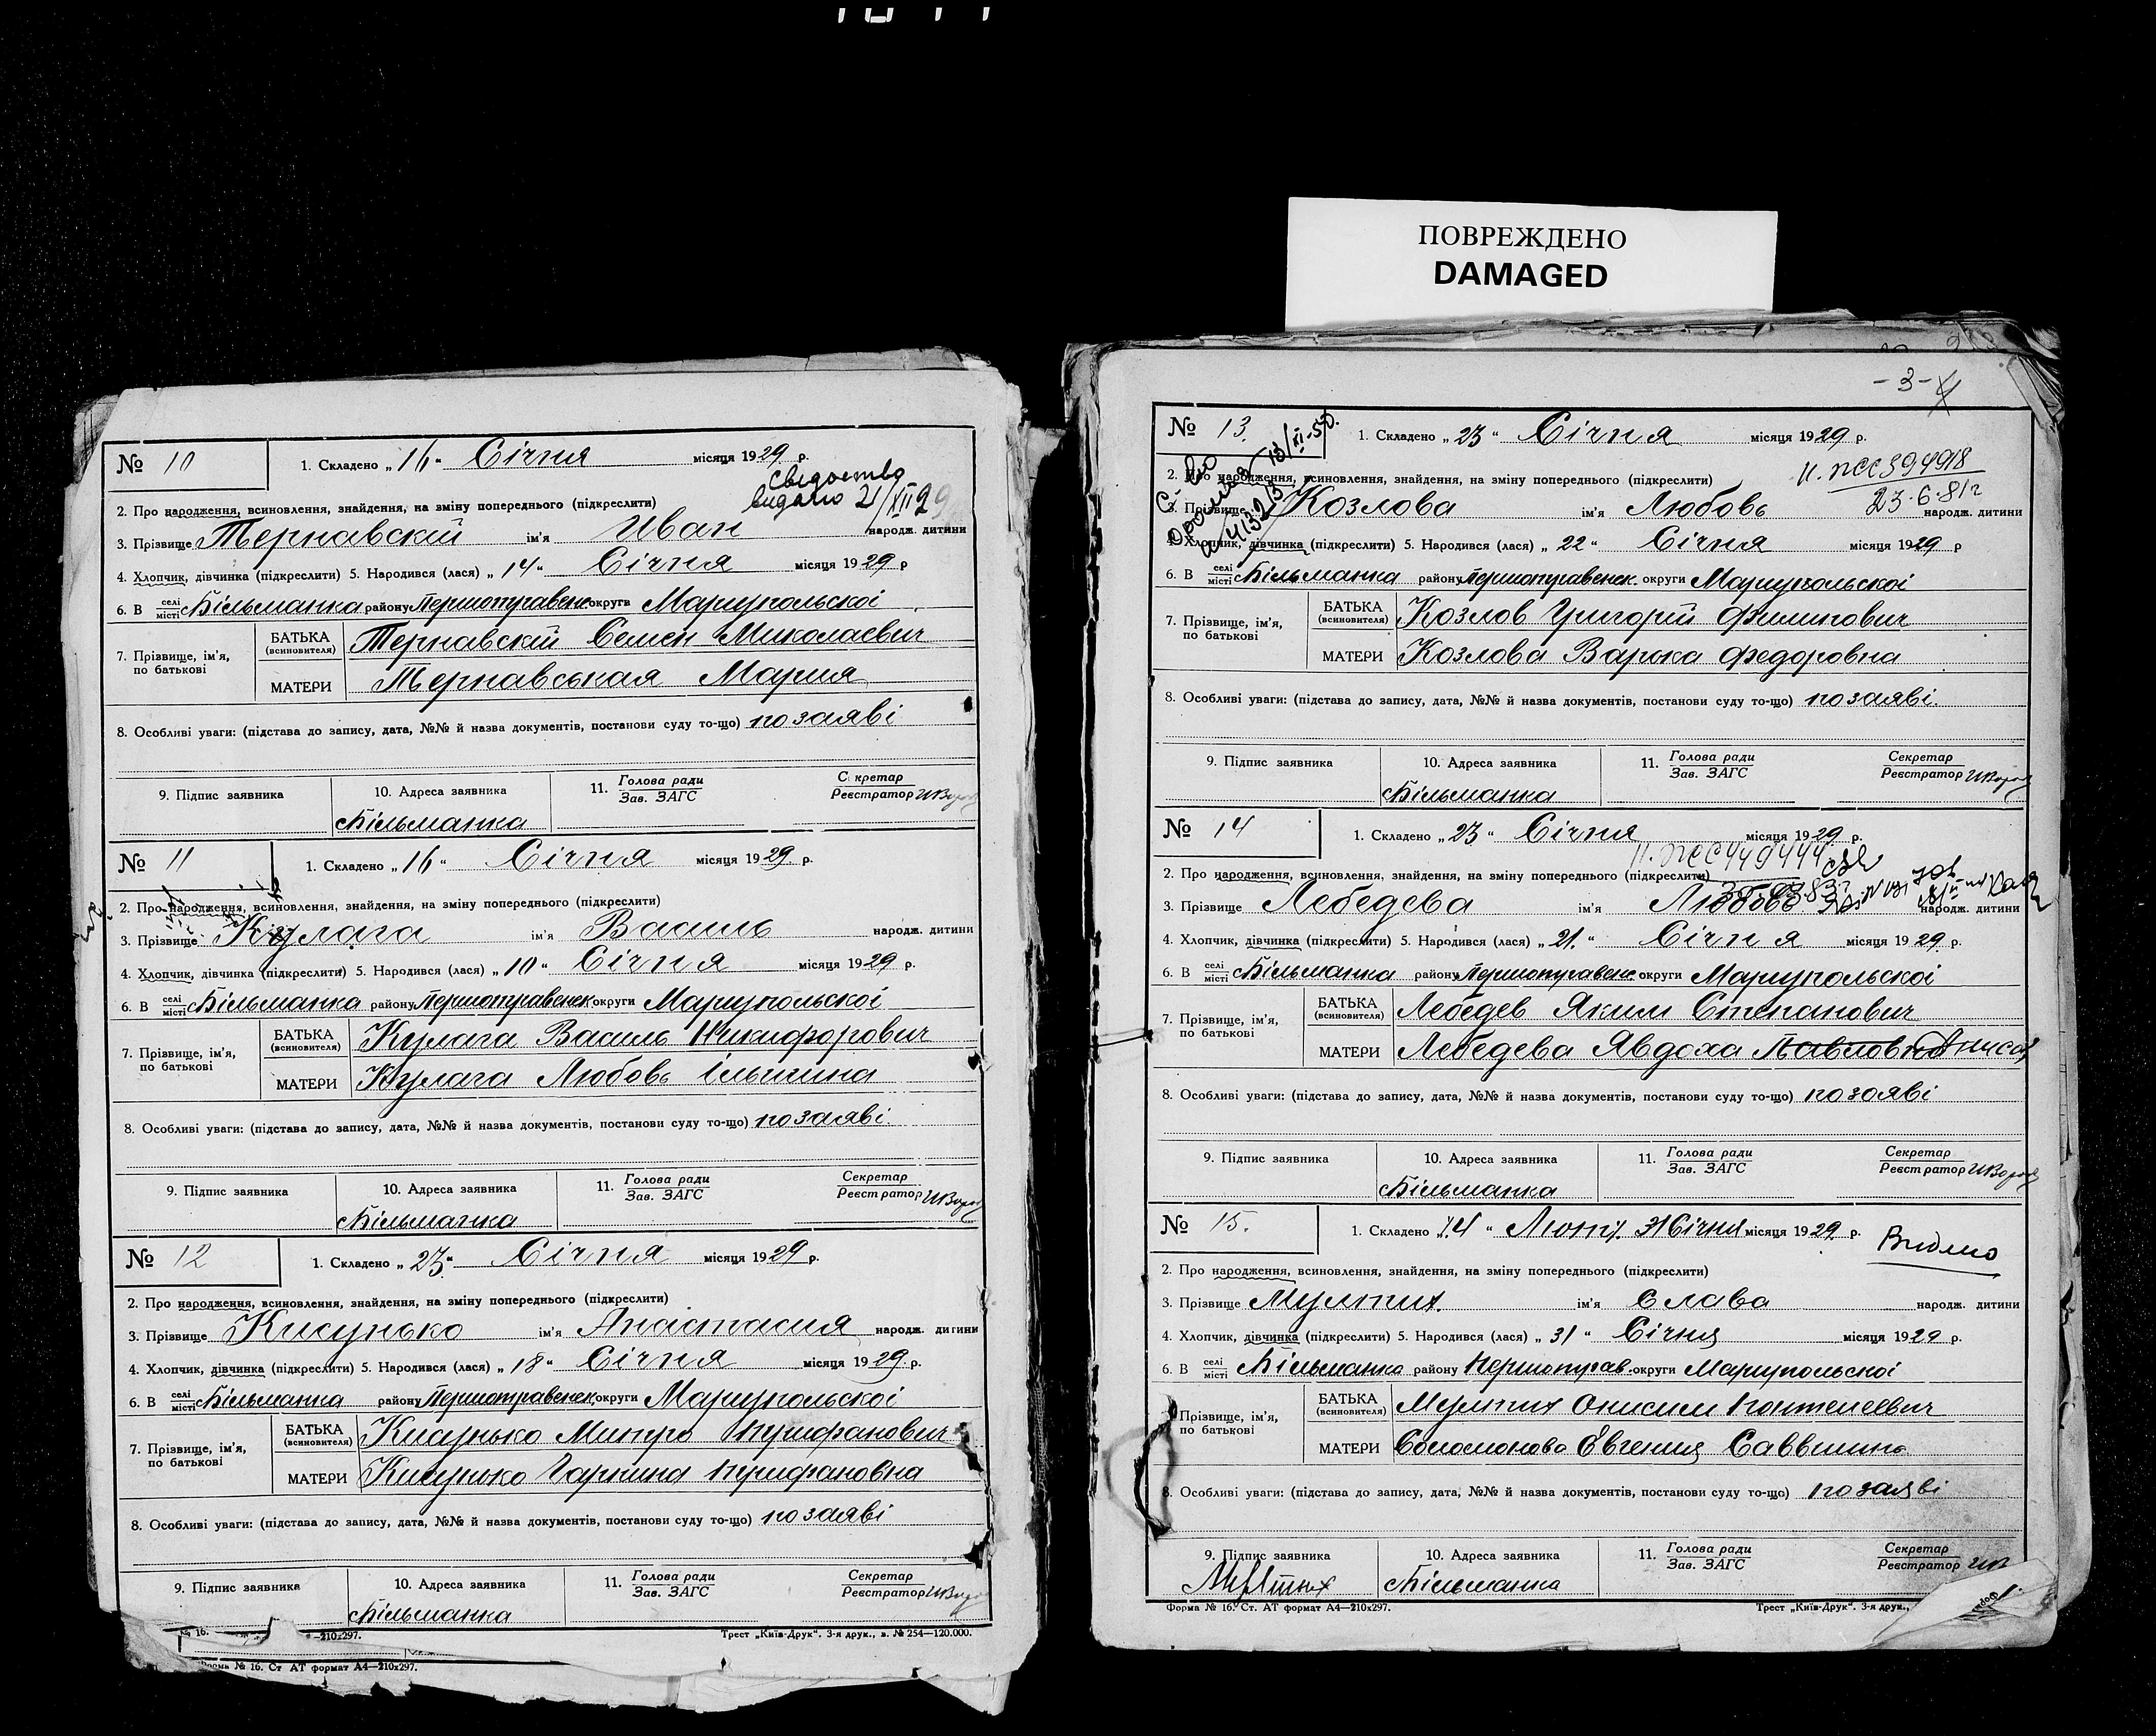 ПОВРЕЖДЕНО
DAMAGED
№ 10
1. Складено „16“ Січня місяця 1929 р.
Свідоцтво
видано 21/XII 29
2. Про народження, всиновлення, знайдення, на зміну попереднього (підкреслити)
3. Прізвище Тернавский ім'я Иван народж. дитини
4. Хлопчик, дівчинка (підкреслити) 5. Народився (лася) „14“ Січня місяця 1929 р
6. В селі місті Більманка району Першотравенс округи Мариупольскоі
7. Прізвище, ім'я, по батькові
БАТЬКА (всиновителя) Тернавский Семен Миколаевич
МАТЕРИ Тернавськая Мария
8. Особливі уваги: (підстава до запису, дата, №№ й назва документів, постанови суду то-що) по заяві
9. Підпис заявника
10. Адреса заявника
Більманка
11. Голова ради
Зав. ЗАГС
Секретар
Реєстратор
№ 11
1. Складено „16“ Січня місяця 1929 р.
2. Про народження, всиновлення, знайдення, на зміну попереднього (підкреслити)
3. Прізвище Кулага ім'я Василь народж. дитини
4. Хлопчик, дівчинка (підкреслити) 5. Народився (лася) „10“ Січня місяця 1929 р.
6. В селі місті Більманка району Першотравенск округи Мариупольскоі
7. Прізвище, ім'я, по батькові
БАТЬКА (всиновителя) Кулага Василь Никифорович
МАТЕРИ Кулага Любовь Ільинина
8. Особливі уваги: (підстава до запису, дата, №№ й назва документів, постанови суду то-що) по заяві.
9. Підпис заявника
10. Адреса заявника
Більманка
11. Голова ради
Зав. ЗАГС
Секретар
Реєстратор
№ 12
1. Складено „23“ Січня місяця 1929 р.
2. Про народження, всиновлення, знайдення, на зміну попереднього (підкреслити)
3. Прізвище Кисунько ім'я Анастасия народж. дитини
4. Хлопчик, дівчинка (підкреслити) 5. Народився (лася) „18“ Січня місяця 1929 р.
6. В селі місті Більманка району Першотравенск округи Мариупольскоі
7. Прізвище, ім'я, по батькові
БАТЬКА (всиновителя) Кисунько Митро
МАТЕРИ Кисунько
8. Особливі уваги: (підстава до запису, дата, №№ й назва документів, постанови суду то-що) по заяві
9. Підпис заявника
10. Адреса заявника
Більманка
11. Голова ради
Зав. ЗАГС
Секретар
Реєстратор
№ 16. —210х297.
Трест „Київ-Друк“. 3-я друк., в. № 254—120.000.
Форма № 16. Ст АТ формат А4—210х297.
-3- 4
№ 13.
1. Складено „23“ Січня місяця 1929 р.
13/XI-50.
2. Про народження, всиновлення, знайдення, на зміну попереднього (підкреслити)
23.6.81г
3. Прізвище Козлова ім'я Любовь народж. дитини
4. Хлопчик, дівчинка (підкреслити) 5. Народився (лася) „22“ Січня місяця 1929 р
6. В селі місті Більманка району Першотравенск. округи Мариупольскоі
7. Прізвище, ім'я, по батькові
БАТЬКА (всиновителя) Козлов Григорій Филипович
МАТЕРИ Козлова Варька Федоровна
8. Особливі уваги: (підстава до запису, дата, №№ й назва документів, постанови суду то-що) по заяві.
9. Підпис заявника
10. Адреса заявника
Більманка
11. Голова ради
Зав. ЗАГС
Секретар
Реєстратор
№ 14
1. Складено „23“ Січня місяця 1929 р.
2. Про народження, всиновлення, знайдення, на зміну попереднього (підкреслити)
3. Прізвище Лебедева ім'я Любовь народж. дитини
4. Хлопчик, дівчинка (підкреслити) 5. Народився (лася) „21.“ Січня місяця 1929 р.
6. В селі місті Більманка району Першотравенс округи Мариупольскоі
7. Прізвище, ім'я, по батькові
БАТЬКА (всиновителя) Лебедев Яким Степанович
МАТЕРИ Лебедева Явдоха Павловна
8. Особливі уваги: (підстава до запису, дата, №№ й назва документів, постанови суду то-що) по заяві
9. Підпис заявника
10. Адреса заявника
Більманка
11. Голова ради
Зав. ЗАГС
Секретар
Реєстратор
№ 15.
1. Складено „4“ Лют. 31 Січня місяця 1929 р.
Видано
2. Про народження, всиновлення, знайдення, на зміну попереднього (підкреслити)
3. Прізвище Мултих. ім'я Слава народж. дитини
4. Хлопчик, дівчинка (підкреслити) 5. Народився (лася) „31“ Січня місяця 1929 р.
6. В селі місті Більманка району Першотрав. округи Мариупольскоі
7. Прізвище, ім'я, по батькові
БАТЬКА (всиновителя) Мултих Онисим Пантелеевич
МАТЕРИ Соломонова Евгения Саввишна
8. Особливі уваги: (підстава до запису, дата, №№ й назва документів, постанови суду то-що) по заяві
9. Підпис заявника
10. Адреса заявника
Більманка
11. Голова ради
Зав. ЗАГС
Секретар
Реєстратор
Форма № 16. Ст. АТ формат А4—210х297.
Трест „Київ-Друк“. 3-я друк.,